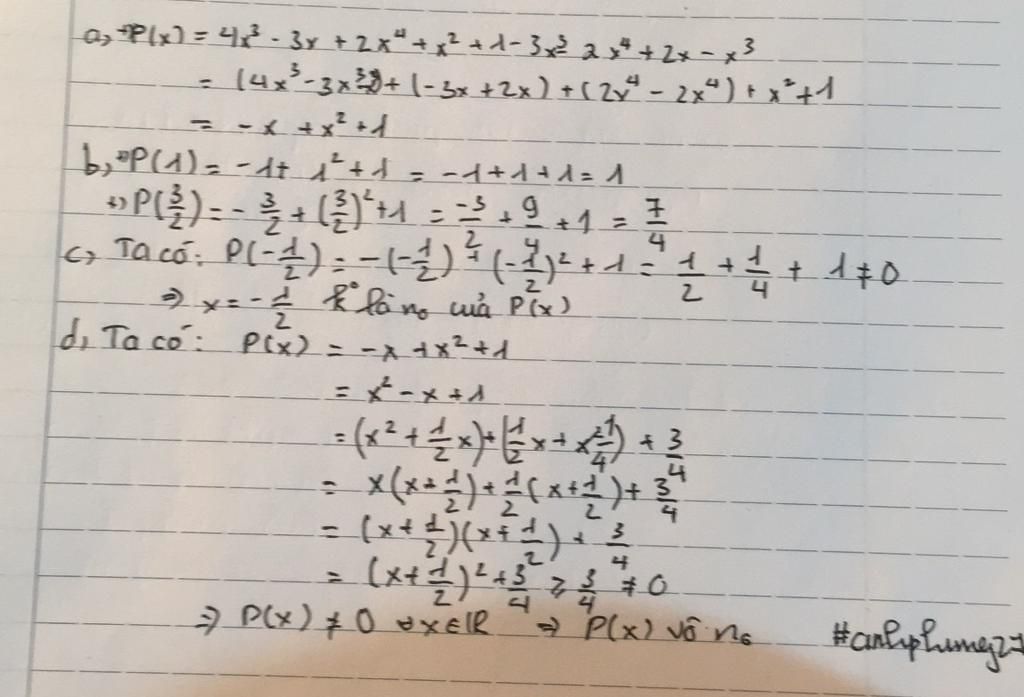 a, +P(x) = 4x³ - 3x + 2x⁴ + x² + 1 - 3x³ - 2x⁴ + 2x - x³
= (4x³ - 3x³ - x³) + (-3x + 2x) + (2x⁴ - 2x⁴) + x² + 1
= -x + x² + 1
b, +) P(1) = -1 + 1² + 1 = -1 + 1 + 1 = 1
+) P(3/2) = -3/2 + (3/2)² + 1 = -3/2 + 9/4 + 1 = 7/4
c, Ta có: P(-1/2) = -(-1/2) + (-1/2)² + 1 = 1/2 + 1/4 + 1 ≠ 0
⇒ x = -1/2 k° là n₀ của P(x)
d, Ta có: P(x) = -x + x² + 1
= x² - x + 1
= (x² + 1/2x) + (1/2x + 1/4) + 3/4
= x(x + 1/2) + 1/2(x + 1/2) + 3/4
= (x + 1/2)(x + 1/2) + 3/4
= (x + 1/2)² + 3/4 ≥ 3/4 ≠ 0
⇒ P(x) ≠ 0 ∀x∈R ⇒ P(x) vô n₀